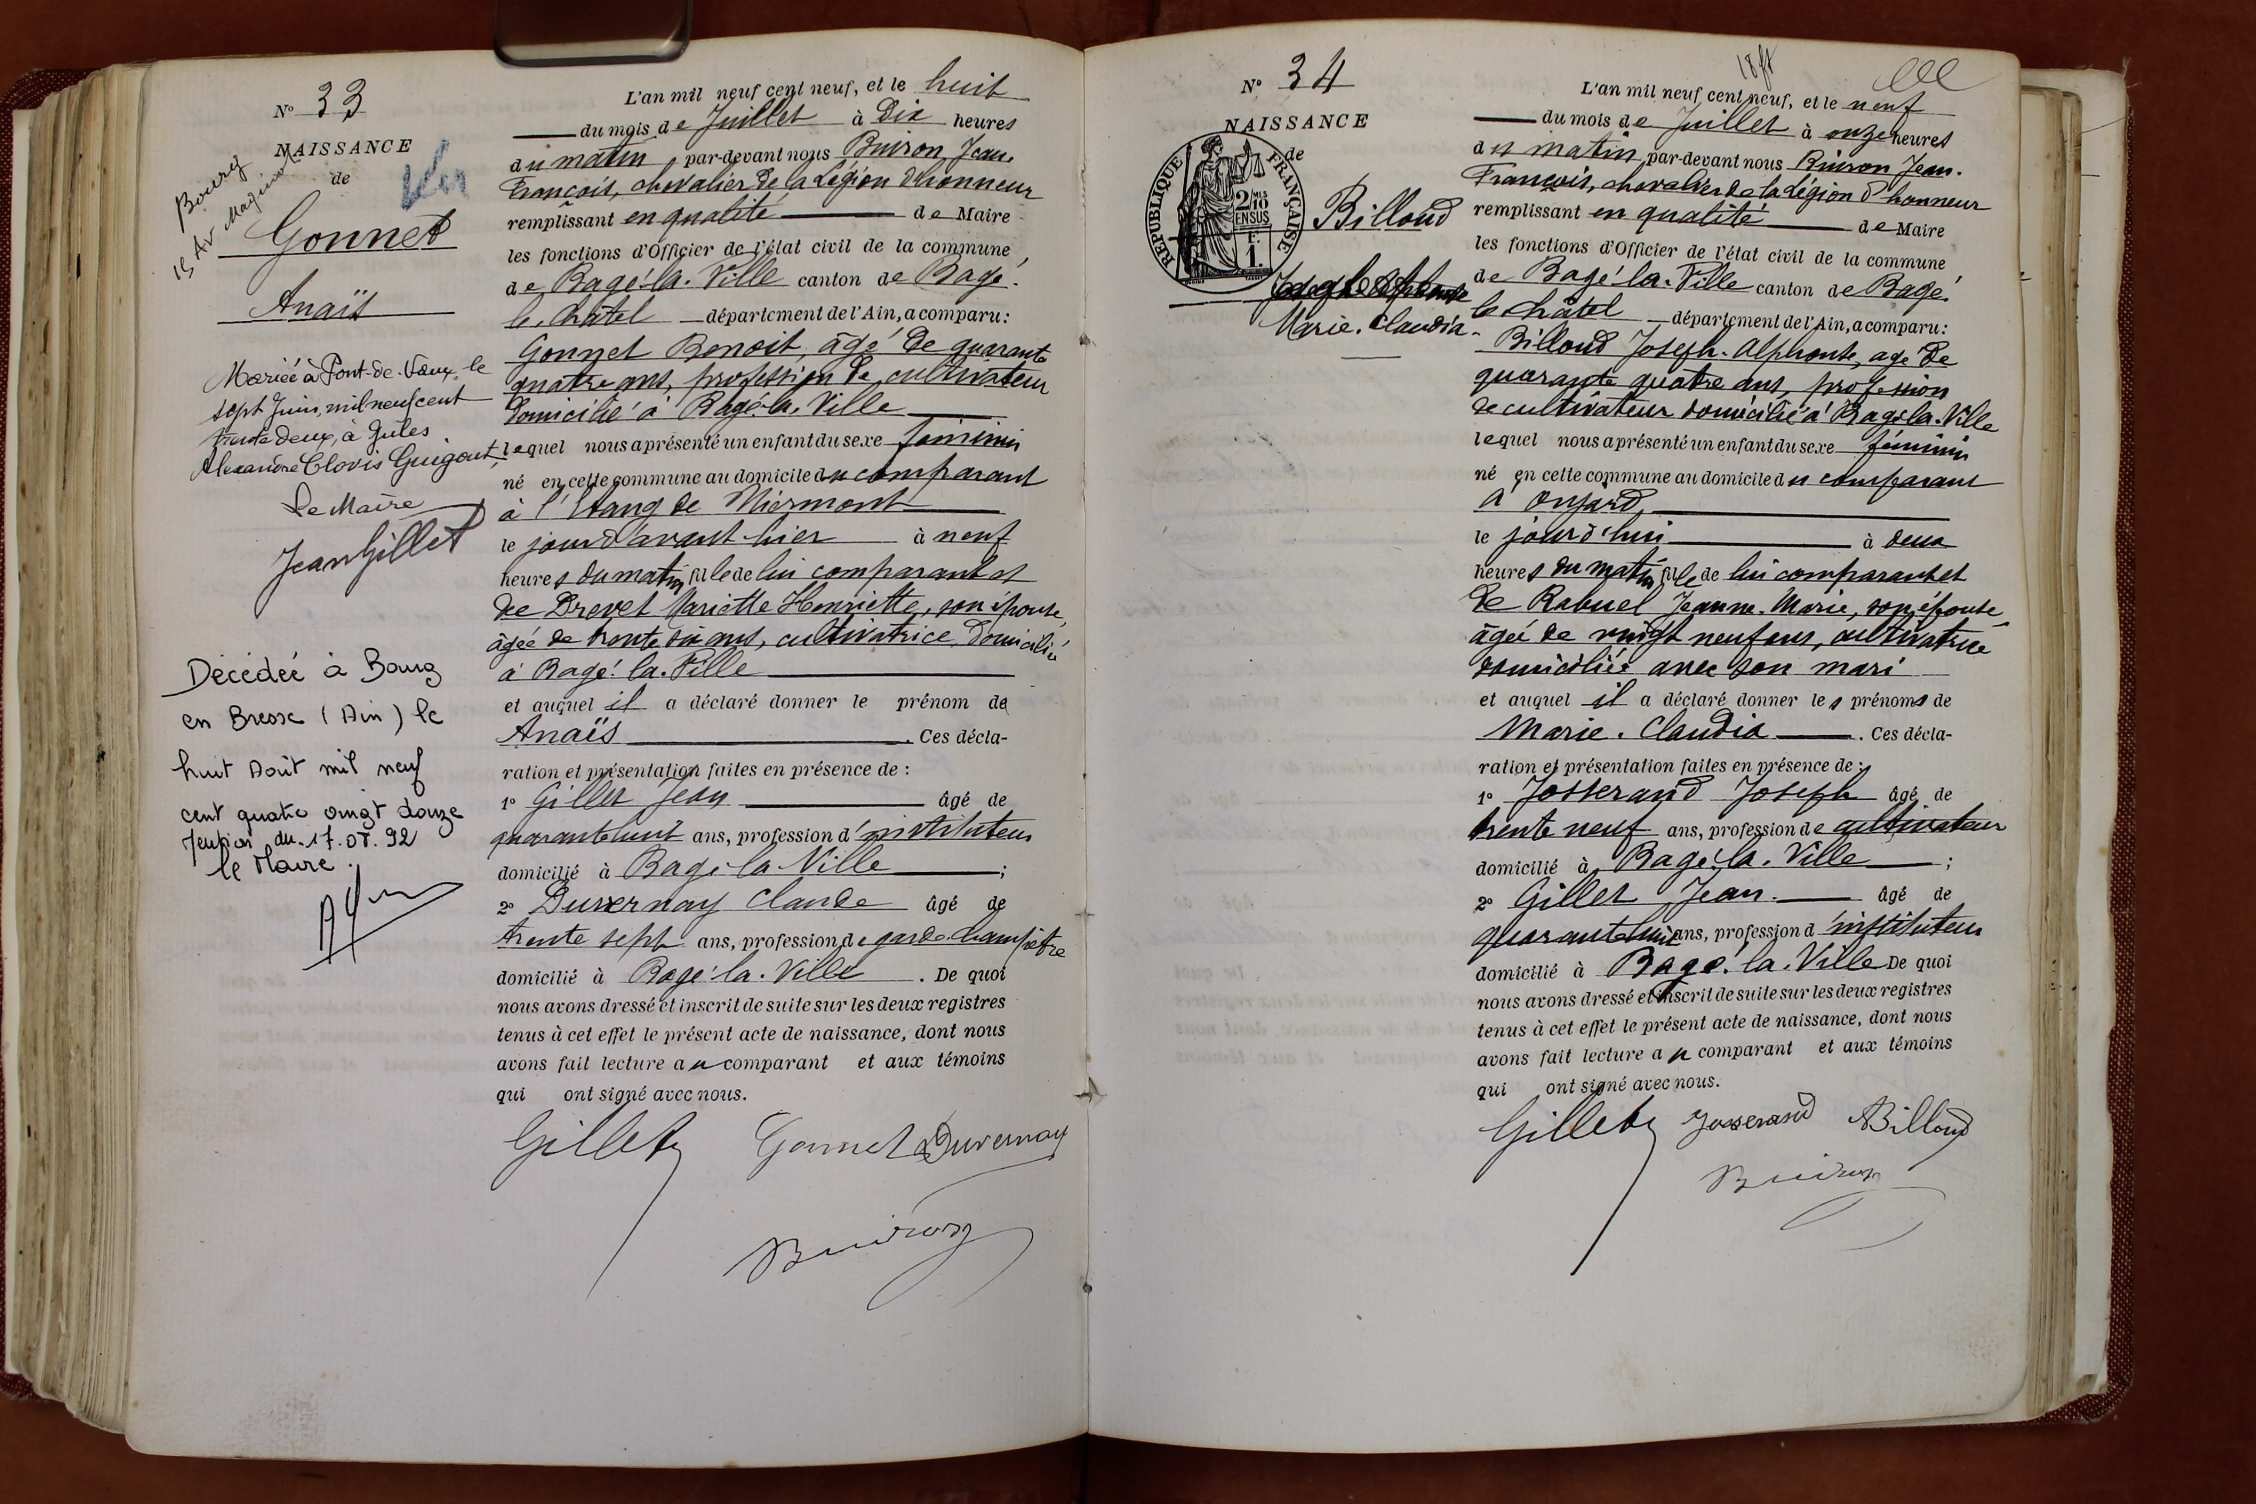 N° 33
NAISSANCE
de
Gonnet
Anaïs
Bourg
Mariée à Pont-de-Vaux, le
sept Juin, mil neuf cent
trente deux, à Jules
Alexandre Clovis Guigout,
Le Maire
Jean Gillet
Décédée à Bourg
en Bresse (Ain) le
huit Août mil neuf
cent quatre vingt douze
le Maire.
L'an mil neuf cent neuf, et le huit
du mois de Juillet à Dix heures
du matin par-devant nous Buiron Jean.
François, chevalier de la Légion d'honneur
remplissant en qualité de Maire
les fonctions d'Officier de l'état civil de la commune
de Bagé-la-Ville canton de Bagé-
le-Châtel département de l'Ain, a comparu:
Gonnet Benoit, âgé de quarante
quatre ans, profession de cultivateur
domicilié à Bagé-la-Ville
lequel nous a présenté un enfant du sexe féminin
né en cette commune au domicile du comparant
à l'Etang de Miermont
le jour d'avant-hier à neuf
heures du matin fille de lui comparant et
de Drevet Mariette Henriette, son épouse,
âgée de trente six ans, cultivatrice domiciliée
à Bagé-la-Ville
et auquel il a déclaré donner le prénom de
Anaïs . Ces décla-
ration et présentation faites en présence de :
1° Gillet Jean âgé de
quarante huit ans, profession d'instituteur
domicilié à Bagé-la-Ville ;
2° Duvernay Claude âgé de
trente sept ans, profession de garde-champêtre
domicilié à Bagé-la-Ville . De quoi
nous avons dressé et inscrit de suite sur les deux registres
tenus à cet effet le présent acte de naissance, dont nous
avons fait lecture au comparant et aux témoins
qui ont signé avec nous.
Gillet Gonnet Duvernay
Buiron
N° 34
NAISSANCE
de
RÉPUBLIQUE FRANÇAISE
2/10
EN SUS
1.
Billoud
Joseph Alphonse
Marie-Claudia-
L'an mil neuf cent neuf, et le neuf
du mois de Juillet à onze heures
du matin par-devant nous Buiron Jean-
François, chevalier de la Légion d'honneur
remplissant en qualité de Maire
les fonctions d'Officier de l'état civil de la commune
de Bagé-la-Ville canton de Bagé-
le-châtel département de l'Ain, a comparu:
Billoud Joseph-Alphonse, agé de
quarante quatre ans, profession
de cultivateur domicilié à Bagé-la-Ville
lequel nous a présenté un enfant du sexe féminin
né en cette commune au domicile du comparant
à Onjard,
le jourd'hui à deux
heures du matin fille de lui comparant et
de Rabuel Jeanne-Marie, son épouse,
âgée de vingt neuf ans, cultivatrice
domiciliée avec son mari
et auquel il a déclaré donner les prénoms de
Marie-Claudia . Ces décla-
ration et présentation faites en présence de :
1° Josserand Joseph âgé de
trente neuf ans, profession de cultivateur
domicilié à Bagé-la-Ville ;
2° Gillet Jean. âgé de
quarante huit ans, profession d'instituteur
domicilié à Bagé-la-Ville De quoi
nous avons dressé et inscrit de suite sur les deux registres
tenus à cet effet le présent acte de naissance, dont nous
avons fait lecture au comparant et aux témoins
qui ont signé avec nous.
Gillet Josserand Billoud
Buiron